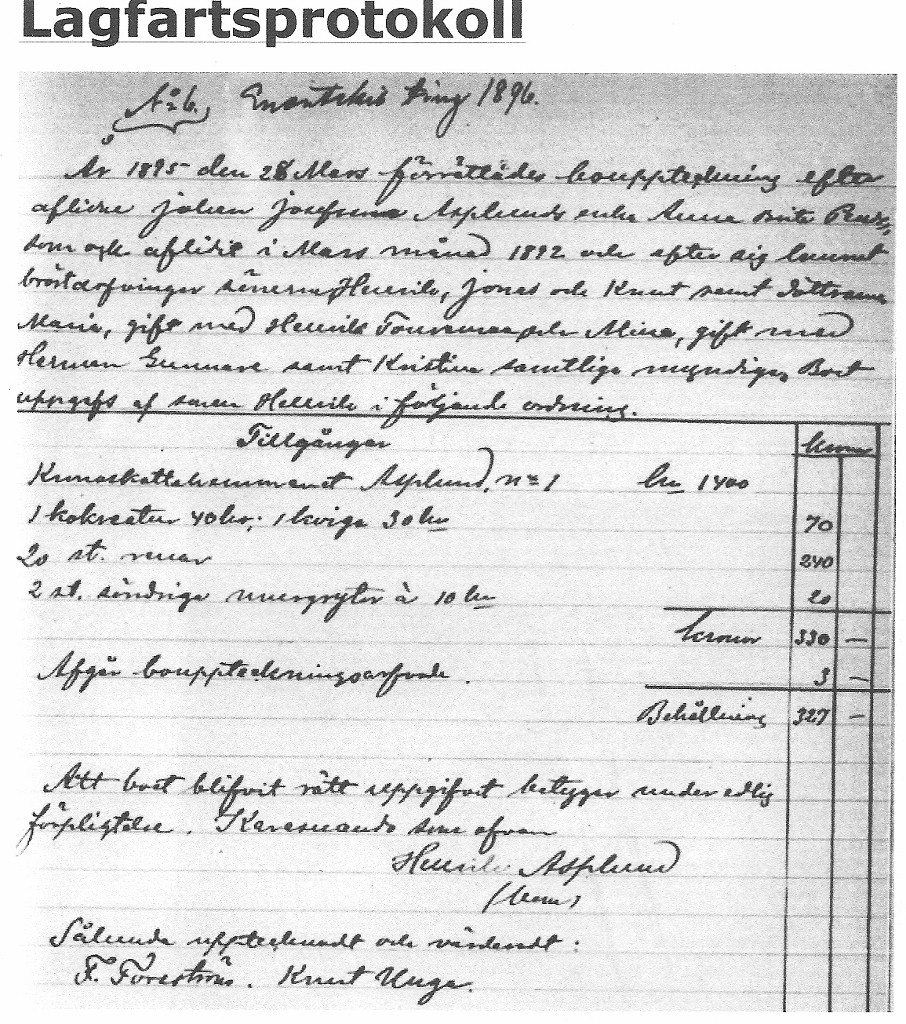 Lagfartsprotokoll
N:o 6. Enontekis ting 1896.
År 1895 den 28 Mars förrättades bouppteckning efter
aflidne Johan Josefsson Asplunds enka Anna Brita
som ock aflidit i Mars månad 1892 och efter sig lemnat
bröstarfvingar sönerna Henrik, Jonas och Knut samt döttrarna
Maria, gift med Henrik och Mina, gift med
Herman Gunnare samt Kristina samtliga myndiga, Boet
uppgafs af sonen Henrik i följande ordning.
Tillgångar kronor
Kronoskattehemmanet Asplund, n:o 1 kr 1400
1 kokreatur 40 kr; 1 kviga 30 kr 70
20 st. renar 240
2 st. söndriga murgrytor à 10 kr 20
kronor 330 —
Afgår bouppteckningsarfvode. 3 —
Behållning 327 —
Att boet blifvit rätt uppgifvet betygar under edlig
förpligtelse. Karesuando som ofvan
Henrik Asplund
(bom)
Sålunda upptecknadt och värderadt:
F. Forsström. Knut Unga.